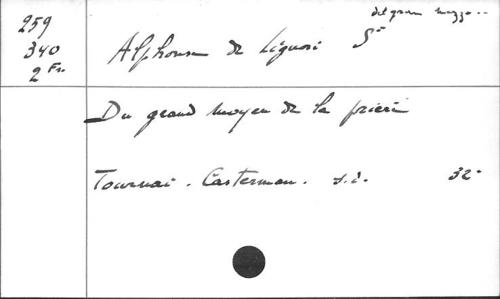 del gran mezzo..
259
340
2 Fr.
Alphonse de Liguori St
Du grand moyen de la prière
Tournai. Casterman. s.d. 32°